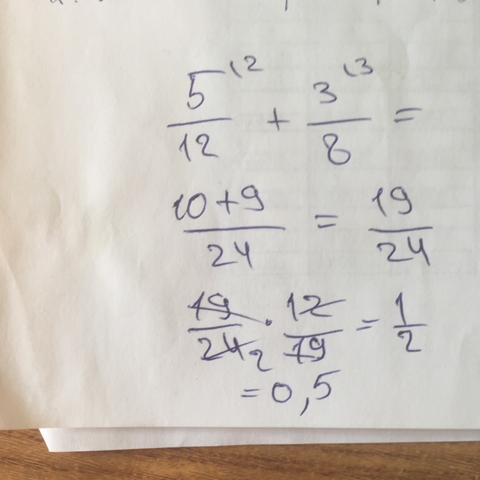 5/12 (2 + 3/8 (3 =
10+9/24 = 19/24
19/24 2 · 12/19 = 1/2
= 0,5